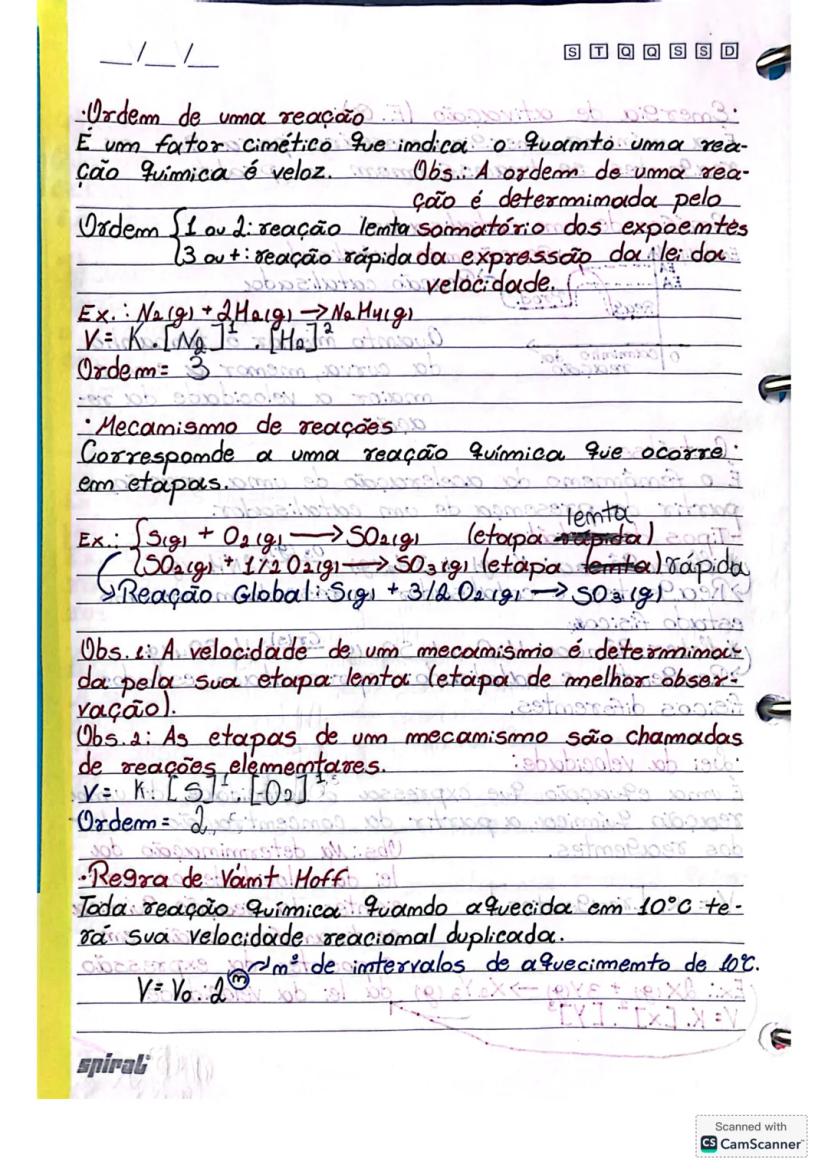 __/__/__
S T Q Q S S D
·Ordem de uma reação
É um fator cinético que indica o quanto uma rea-
ção química é veloz. Obs.: A ordem de uma rea-
ção é determinada pelo
Ordem { 1 ou 2: reação lenta somatório dos expoentes
3 ou +: reação rápida da expressão da lei da
velocidade.
Ex.: N2(g) + 2H2(g) → N2H4(g)
V= K.[N2]¹ . [H2]²
Ordem= 3
· Mecanismo de reações
Corresponde a uma reação química que ocorre
em etapas.
Ex.: { S(g) + O2(g) → SO2(g) (etapa rápida lenta)
SO2(g) + 1/2 O2(g) → SO3(g) (etapa lenta) rápida
Reação Global: S(g) + 3/2 O2(g) → SO3(g)
Obs. 1: A velocidade de um mecanismo é determina-
da pela sua etapa lenta (etapa de melhor obser-
vação).
Obs. 2: As etapas de um mecanismo são chamadas
de reações elementares.
V= K. [S]¹. [O2]¹
Ordem= 2
·Regra de Vant Hoff
Toda reação química quando aquecida em 10°C te-
rá sua velocidade reacional duplicada.
nº de intervalos de aquecimento de 10°C.
V= V0. 2ⁿ
spiral
Scanned with
CS CamScanner